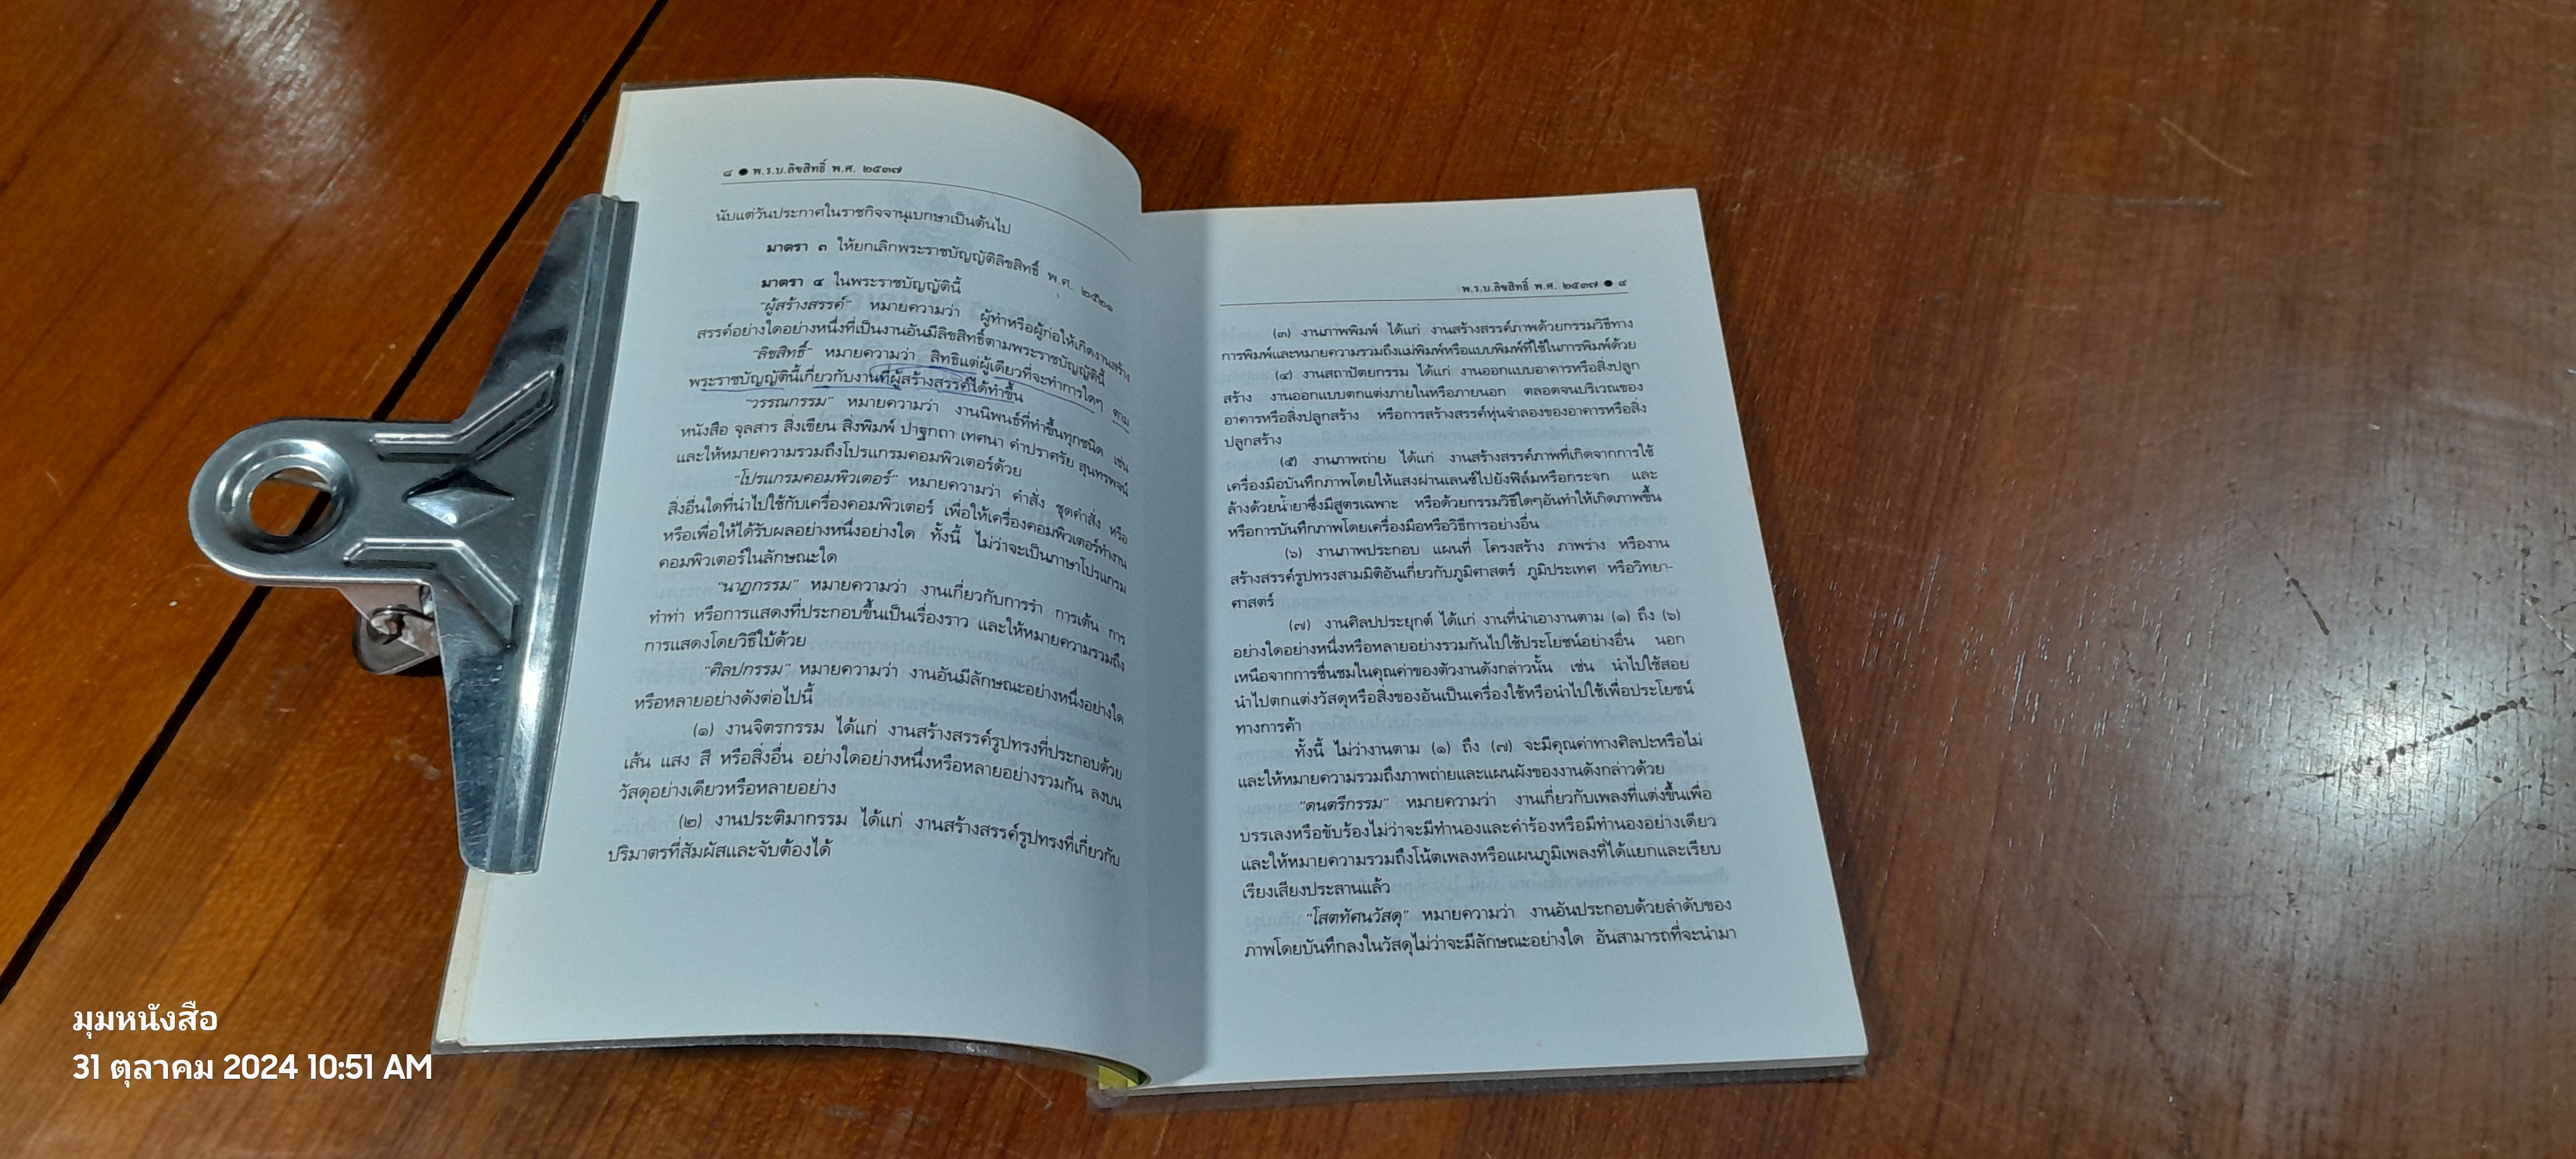 ๘ ● พ.ร.บ.ลิขสิทธิ์ พ.ศ. ๒๕๓๗
นับแต่วันประกาศในราชกิจจานุเบกษาเป็นต้นไป
มาตรา ๓ ให้ยกเลิกพระราชบัญญัติลิขสิทธิ์ พ.ศ. ๒๕๒๑
มาตรา ๔ ในพระราชบัญญัตินี้
“ผู้สร้างสรรค์” หมายความว่า ผู้ทำหรือผู้ก่อให้เกิดงานสร้าง
สรรค์อย่างใดอย่างหนึ่งที่เป็นงานอันมีลิขสิทธิ์ตามพระราชบัญญัตินี้
“ลิขสิทธิ์” หมายความว่า สิทธิแต่ผู้เดียวที่จะทำการใดๆ ตาม
พระราชบัญญัตินี้เกี่ยวกับงานที่ผู้สร้างสรรค์ได้ทำขึ้น
“วรรณกรรม” หมายความว่า งานนิพนธ์ที่ทำขึ้นทุกชนิด เช่น
หนังสือ จุลสาร สิ่งเขียน สิ่งพิมพ์ ปาฐกถา เทศนา คำปราศรัย สุนทรพจน์
และให้หมายความรวมถึงโปรแกรมคอมพิวเตอร์ด้วย
“โปรแกรมคอมพิวเตอร์” หมายความว่า คำสั่ง ชุดคำสั่ง หรือ
สิ่งอื่นใดที่นำไปใช้กับเครื่องคอมพิวเตอร์ เพื่อให้เครื่องคอมพิวเตอร์ทำงาน
หรือเพื่อให้ได้รับผลอย่างหนึ่งอย่างใด ทั้งนี้ ไม่ว่าจะเป็นภาษาโปรแกรม
คอมพิวเตอร์ในลักษณะใด
“นาฏกรรม” หมายความว่า งานเกี่ยวกับการรำ การเต้น การ
ทำท่า หรือการแสดงที่ประกอบขึ้นเป็นเรื่องราว และให้หมายความรวมถึง
การแสดงโดยวิธีใบ้ด้วย
“ศิลปกรรม” หมายความว่า งานอันมีลักษณะอย่างหนึ่งอย่างใด
หรือหลายอย่างดังต่อไปนี้
(๑) งานจิตรกรรม ได้แก่ งานสร้างสรรค์รูปทรงที่ประกอบด้วย
เส้น แสง สี หรือสิ่งอื่น อย่างใดอย่างหนึ่งหรือหลายอย่างรวมกัน ลงบน
วัสดุอย่างเดียวหรือหลายอย่าง
(๒) งานประติมากรรม ได้แก่ งานสร้างสรรค์รูปทรงที่เกี่ยวกับ
ปริมาตรที่สัมผัสและจับต้องได้
พ.ร.บ.ลิขสิทธิ์ พ.ศ. ๒๕๓๗ ● ๙
(๓) งานภาพพิมพ์ ได้แก่ งานสร้างสรรค์ภาพด้วยกรรมวิธีทาง
การพิมพ์และหมายความรวมถึงแม่พิมพ์หรือแบบพิมพ์ที่ใช้ในการพิมพ์ด้วย
(๔) งานสถาปัตยกรรม ได้แก่ งานออกแบบอาคารหรือสิ่งปลูก
สร้าง งานออกแบบตกแต่งภายในหรือภายนอก ตลอดจนบริเวณของ
อาคารหรือสิ่งปลูกสร้าง หรือการสร้างสรรค์หุ่นจำลองของอาคารหรือสิ่ง
ปลูกสร้าง
(๕) งานภาพถ่าย ได้แก่ งานสร้างสรรค์ภาพที่เกิดจากการใช้
เครื่องมือบันทึกภาพโดยให้แสงผ่านเลนซ์ไปยังฟิล์มหรือกระจก และ
ล้างด้วยน้ำยาซึ่งมีสูตรเฉพาะ หรือด้วยกรรมวิธีใดๆอันทำให้เกิดภาพขึ้น
หรือการบันทึกภาพโดยเครื่องมือหรือวิธีการอย่างอื่น
(๖) งานภาพประกอบ แผนที่ โครงสร้าง ภาพร่าง หรืองาน
สร้างสรรค์รูปทรงสามมิติอันเกี่ยวกับภูมิศาสตร์ ภูมิประเทศ หรือวิทยา-
ศาสตร์
(๗) งานศิลปประยุกต์ ได้แก่ งานที่นำเอางานตาม (๑) ถึง (๖)
อย่างใดอย่างหนึ่งหรือหลายอย่างรวมกันไปใช้ประโยชน์อย่างอื่น นอก
เหนือจากการชื่นชมในคุณค่าของตัวงานดังกล่าวนั้น เช่น นำไปใช้สอย
นำไปตกแต่งวัสดุหรือสิ่งของอันเป็นเครื่องใช้หรือนำไปใช้เพื่อประโยชน์
ทางการค้า
ทั้งนี้ ไม่ว่างานตาม (๑) ถึง (๗) จะมีคุณค่าทางศิลปะหรือไม่
และให้หมายความรวมถึงภาพถ่ายและแผนผังของงานดังกล่าวด้วย
“ดนตรีกรรม” หมายความว่า งานเกี่ยวกับเพลงที่แต่งขึ้นเพื่อ
บรรเลงหรือขับร้องไม่ว่าจะมีทำนองและคำร้องหรือมีทำนองอย่างเดียว
และให้หมายความรวมถึงโน้ตเพลงหรือแผนภูมิเพลงที่ได้แยกและเรียบ
เรียงเสียงประสานแล้ว
“โสตทัศนวัสดุ” หมายความว่า งานอันประกอบด้วยลำดับของ
ภาพโดยบันทึกลงในวัสดุไม่ว่าจะมีลักษณะอย่างใด อันสามารถที่จะนำมา
มุมหนังสือ
31 ตุลาคม 2024 10:51 AM